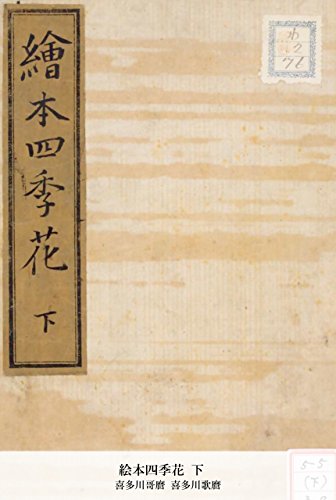 繪本四季花 下
絵本四季花 下
喜多川哥麿 喜多川歌麿
5-5
(下)